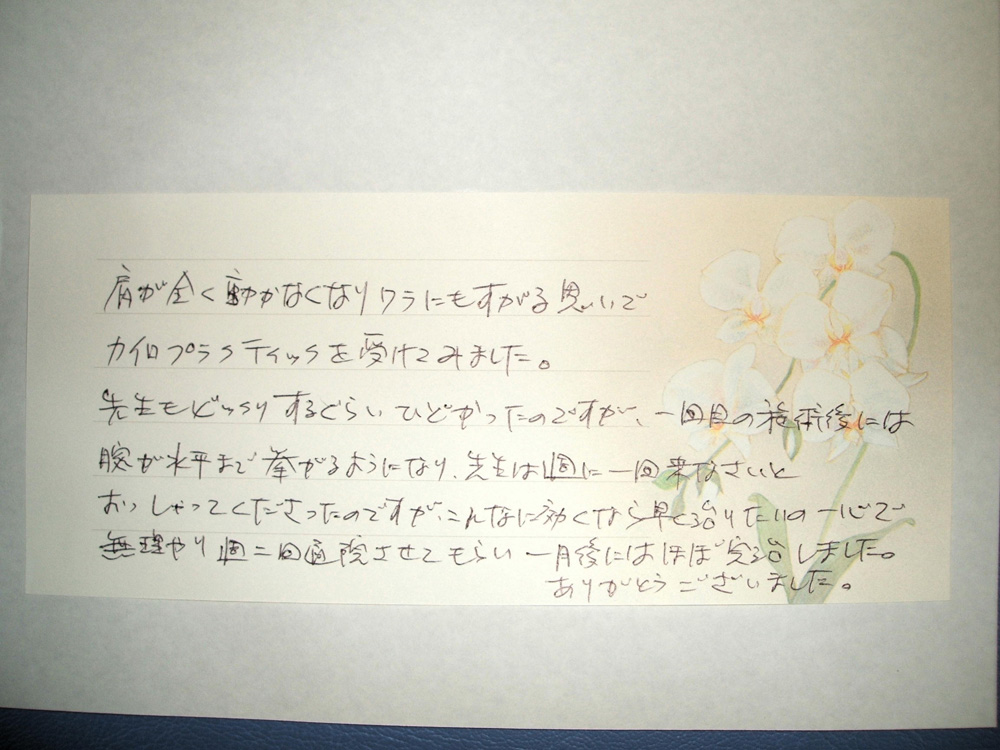 肩が全く動かなくなりワラにもすがる思いで
カイロプラクティックを受けてみました。
先生もビックリするぐらいひどかったのですが、一回目の施術後には
腕が水平まで挙がるようになり、先生は週に一回来なさいと
おっしゃってくださったのですが、こんなに効くなら早く治りたいの一心で
無理やり週二回通院させてもらい一月後にはほぼ完治しました。
ありがとうございました。